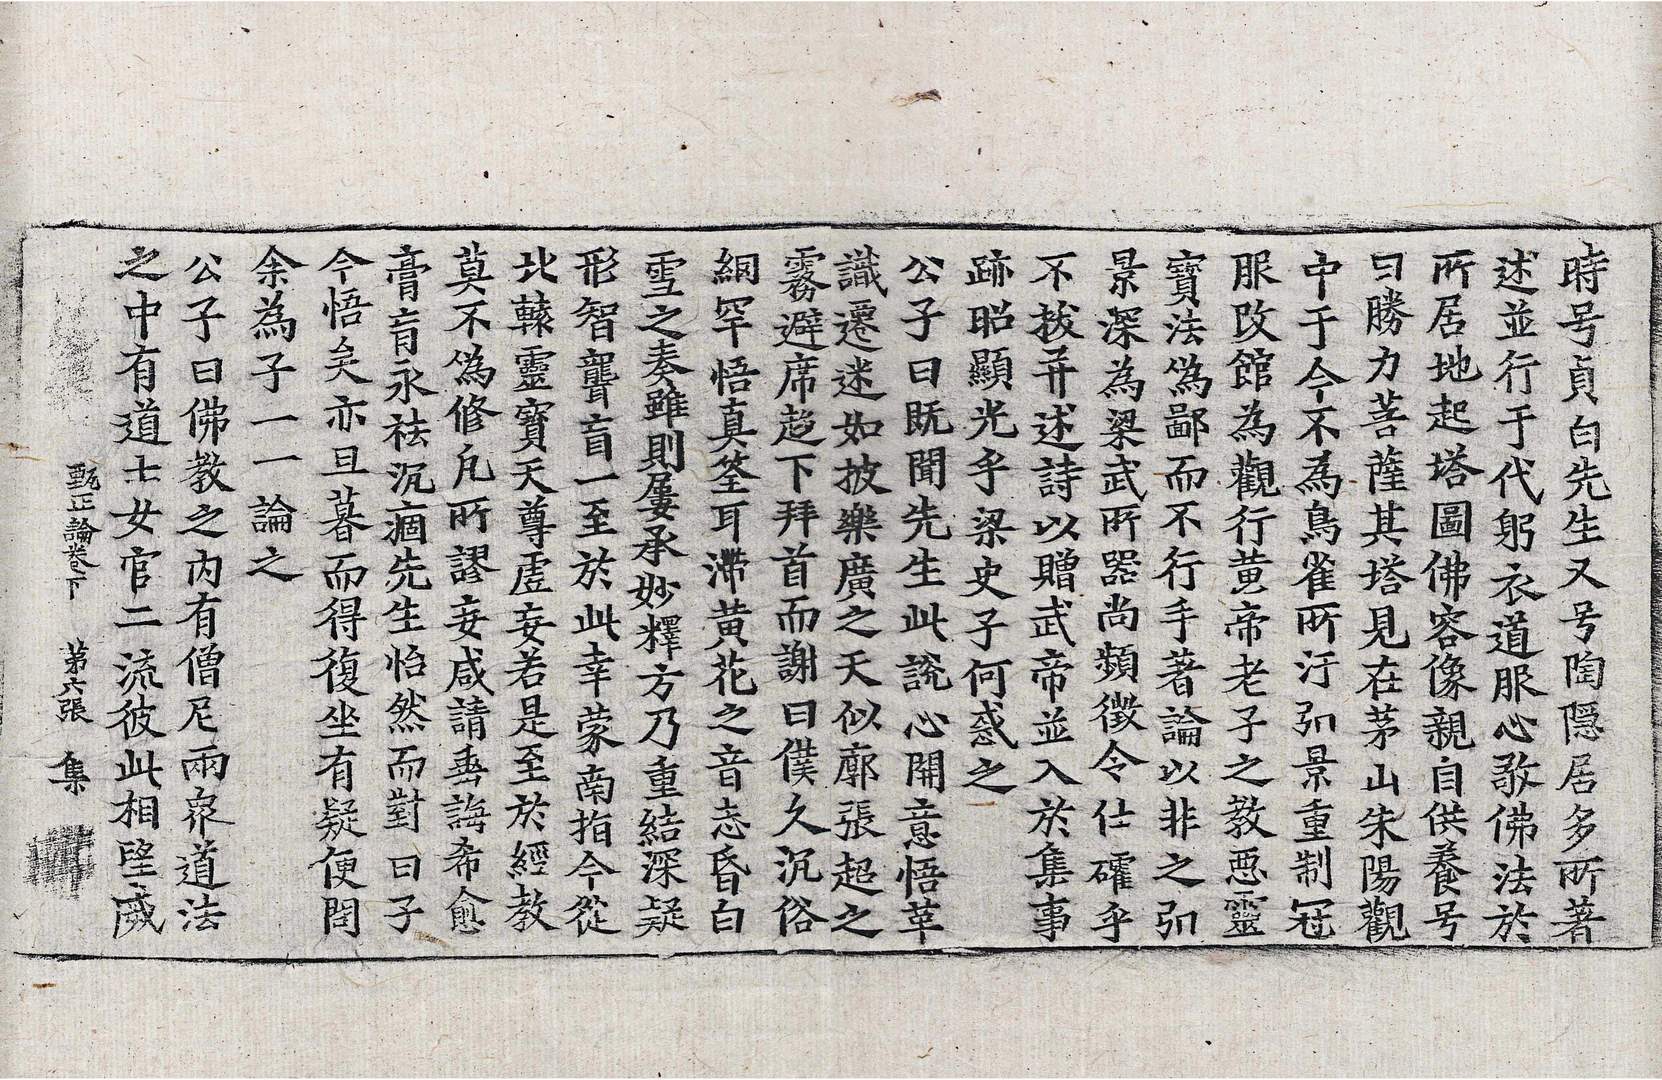 時号貞白先生又号陶隱居多所著
述並行于代躬衣道服心敬佛法於
所居地起塔圖佛容像親自供養号
曰勝力菩薩其塔見在茅山朱陽觀
中于今不為鳥雀所汙弘景重制冠
服改館為觀行黃帝老子之教惡靈
寶法偽鄙而不行手著論以非之弘
景深為梁武所器尚頻徵令仕確乎
不拔并述詩以贈武帝並入於集事
跡昭顯光乎梁史子何惑之
公子曰既聞先生此說心開意悟革
識遷迷如披樂廣之天似廓張超之
霧避席趍下拜首而謝曰僕久沉俗
網罕悟真筌耳滯黃花之音忘昏白
雪之奏雖則屢承妙釋方乃重結深疑
形智聾盲一至於此幸蒙南指今從
北轅靈寶天尊虛妄若是至於經教
莫不偽修凡所謬妄咸請垂誨希愈
膏肓永祛沉痼先生怡然而對曰子
今悟矣亦旦暮而得復坐有疑便問
余為子一一論之
公子曰佛教之內有僧尼兩眾道法
之中有道士女官二流彼此相望威
甄正論卷下 第六張 集